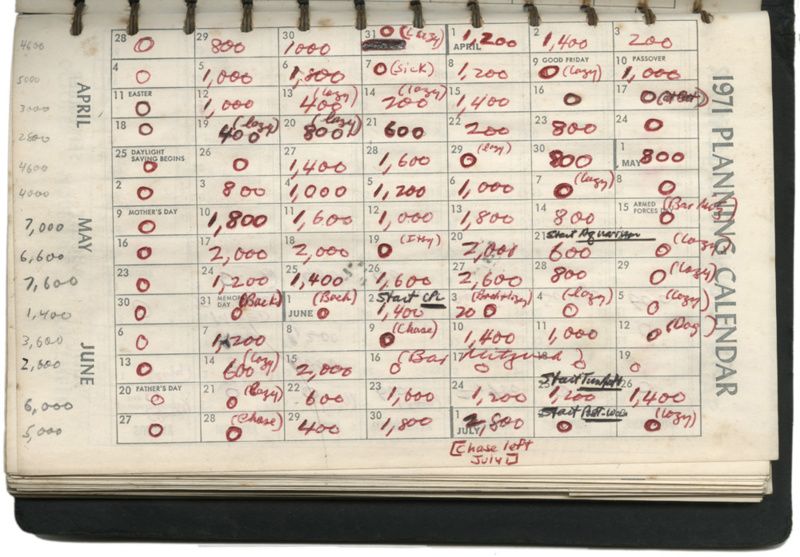 1971 PLANNING CALENDAR
APRIL
MAY
JUNE
4600 28 0 29 800 30 1000 31 0 (Lazy) 1 APRIL 1,200 2 1,400 3 200
5000 4 0 5 1,000 6 1,800 7 0 (Sick) 8 1,200 9 GOOD FRIDAY 0 (Lazy) 10 PASSOVER 1,000
3000 11 EASTER 0 12 1,000 13 (Lazy) 400 14 (Lazy) 200 15 1,400 16 0 17 0
2800 18 0 19 (Lazy) 400 20 (Lazy) 800 21 600 22 200 23 800 24 0
4600 25 DAYLIGHT SAVING BEGINS 0 26 0 27 1,400 28 1,600 29 (Lazy) 0 30 800 1 MAY 800
4000 2 0 3 800 4 1,000 5 1,200 6 1,000 7 (Lazy) 0 8 0
7,000 9 MOTHER'S DAY 0 10 1,800 11 1,600 12 1,000 13 1,800 14 800 15 ARMED FORCES 0
6,600 16 0 17 2,000 18 2,000 19 0 20 2,000 21 Start Aquarium 600 (Lazy) 0
7,600 23 0 24 1,200 25 1,400 26 1,600 27 2,600 28 800 29 (Lazy) 0
1,400 30 0 31 MEMORIAL DAY (Back) 0 1 JUNE (Back) 0 2 Start 1,400 3 4 (Lazy) 0 5 (Lazy) 0
3,600 6 0 7 1,200 8 0 9 (Chase) 0 10 1,400 11 1,000 12 (Dog) 0
13 0 14 (Lazy) 600 15 2,000 16 (Bar Mitzvah) 0 19 0
6,000 20 FATHER'S DAY 0 21 (Lazy) 0 22 600 23 1,000 24 1,200 Start 1,200 26 1,400
5,000 27 0 28 (Chase) 0 29 400 30 1,800 1 JULY 2,800 Start 0 (Lazy) 0
[Chase left
July 1]